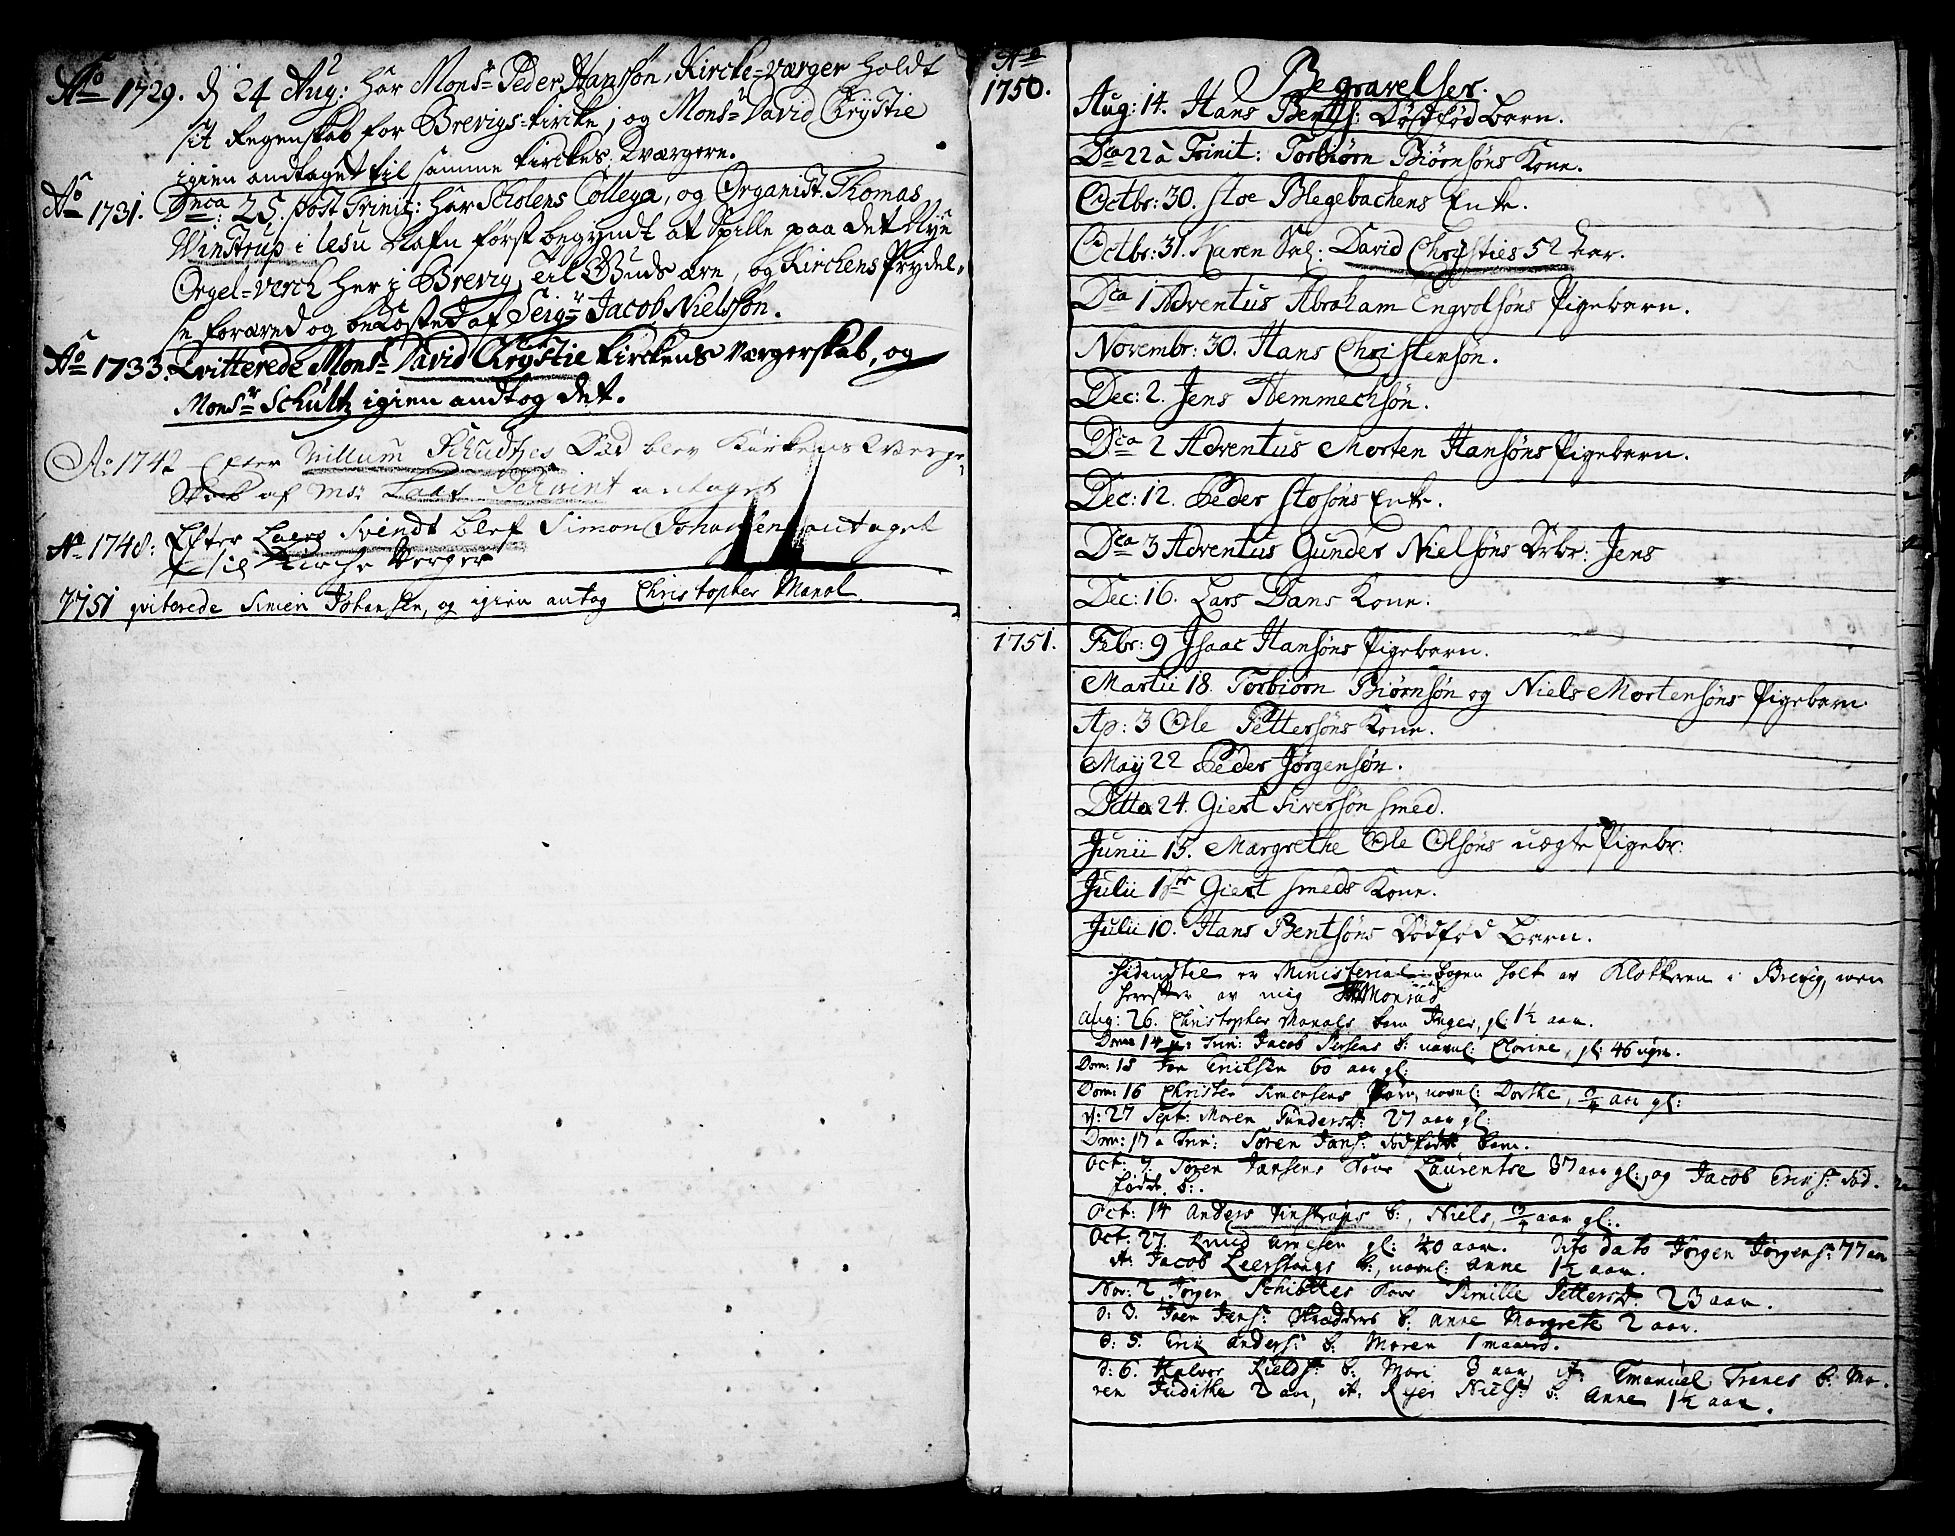 Aō 1729. d 24 Aug: har Monsr Peder Hansøn, Kircke-værger holdt
sit Regenskab for Brevigs-kircke, og Monsr David Chrystie
igien andtaget til samme kirckes Værgere.
Aō 1731. Dnca: 25. post Trinit: har Scholens Collega, og Organist. Thomas
Winstrup i Iesu Nafn først begyndt at Spille paa det Nye
Orgel-verck her i Brevig, til Guds ære, og Kirckens Prydel-
se foræred og bekosted af Seigr Jacob Nielssøn.
Aō 1733. Qvitterede Monsr David Chrystie kirckens værgerskab, og
Monsr Schultz igien andtog det.
Ao 1742 Efter Willum Schultzes Død blev Kirkens Verge-
Skab af Ms: Laars Svint antaget
Aō 1748: Efter Laers Svindt blef Simon Johansen antaget
til Kirche Verger
1751 qviterede Simen Johansen, og igien antog Christopher Manal
Aō
1750.
Begravelser.
Aug: 14. Hans Bentsøns: Dødfød Barn.
Dca 22 à Trinit: Torbiørn Biørnsøns Kone.
Octbr: 30. Stoe Blegebachens Enke.
Octbr: 31. Karen Sal: David Christies 52 Aar.
Dca 1 Adventus Abraham Engvolsøns Pigebarn.
Novembr: 30. Hans Christensøn.
Dec: 2. Jens Hemmechsøn.
Dca 2 Adventus Morten Hansøns Pigebarn.
Dec: 12. Peder Stosøns Enke.
Dca 3 Adventus Gunder Nielsøns Drbr: Jens
Dec: 16. Lars Dans Kone.
1751.
Febr: 9 Isaac Hansøns Pigebarn.
Martii 18. Torbiørn Biørnsøn og Niels Mortensøns Pigebarn
Ap: 3 Ole Pettersøns Kone.
May 22 Peder Jørgensøn.
Ditto 24. Giert Siversøn Smed.
Junii 15. Margrethe Ole Olsøns uægte Pigebr:
Julii 1ste Giert Smeds Kone.
Julii 10. Hans Bentsøns Dødfød Barn.
hidindtil er Ministerial-bogen holt av Klokkeren i Brevig, men
herefter av mig Monrad
Aug: 26. Christopher Manals barn Inger, gl: 1½ aar.
Dom: 14 p: Trin: Jacob Iversens b: navnl: Elorine, gl: 46 ugr.
Dom: 15 Jon Eriksen 60 aar gl:
Dom: 16 Christen Simensens Barn, navnl: Dorthe, ¾ aar gl:
d: 27 Sept: Maren Gundersd: 27 aar gl:
Dom: 17 a Trin: Søren Jans: dødfødt barn.
Oct: 9. Søren Jansens kone Laurentse 37 aar gl:, og Jacob Eriks: død-
fødde b:.
Oct: 14 Anders Vinstrups b:, Niels, ¾ aar gl:.
Oct: 27. Knud Arnesen gl: 40 aar. dito dato Jørgen Jørgens: 77 aar
it: Jacob Leerstangs b:, navnl: Anne 1½ aar.
Nov: 2 Jørgen Schiøttes kone Simille Pettersd: 23 aar.
d: 3. Joen Jens: Skrædders b: Anne Margrete 2 aar.
d: 5. Erik Anders: b: Maren 1 maaned.
d: 6. Halvor Kields: b: Mari 3 aar, it: Emanuel Tranes b: Ma-
ren Judithe 2 aar, it: Ryer Niels: b: Anne 1½ aar.